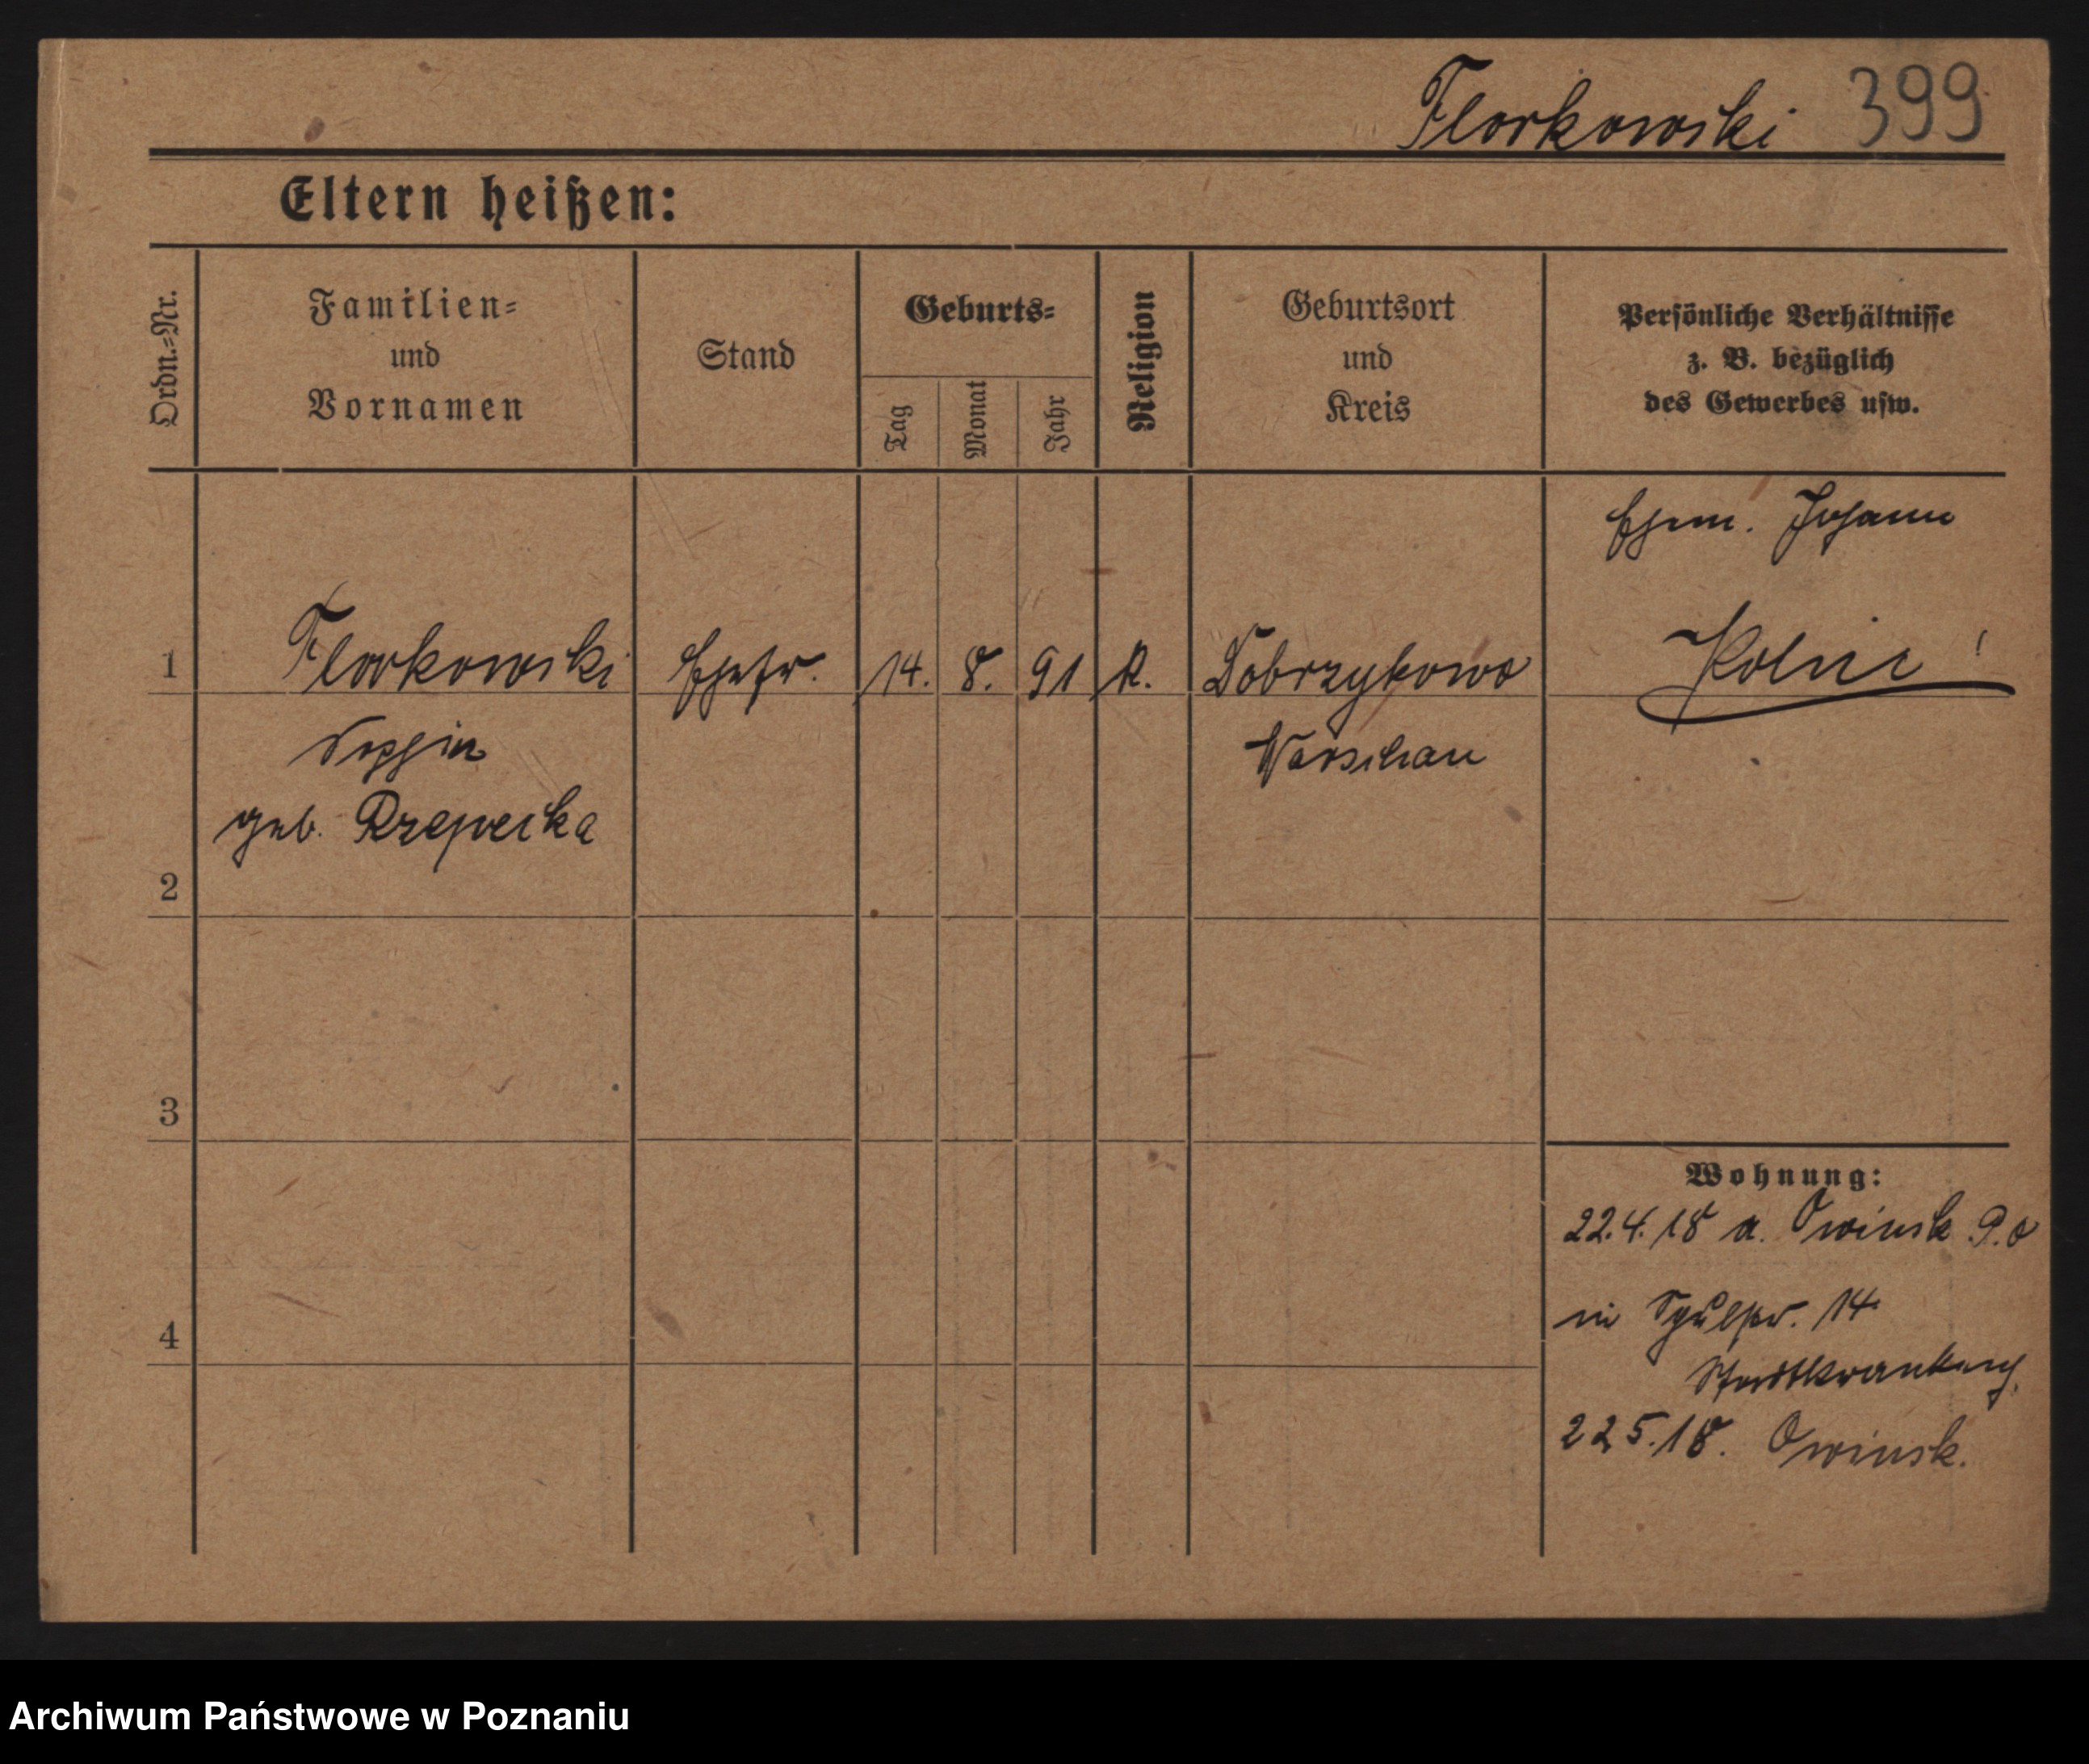 Florkowski 399
Eltern heißen:
Ordn.=Nr.
Familien=
und
Vornamen
Stand
Geburts=
Tag
Monat
Jahr
Religion
Geburtsort
und
Kreis
Persönliche Verhältnisse
z. B. bezüglich
des Gewerbes usw.
Ehem. Johann
1 Florkowski Ehefr. 14. 8. 91 K. Dobrzykowo
Sophie Warschau
geb. Rzepecka
2
3
4
Wohnung:
22.4.18 a. Owinsk P.O
in Schulstr. 14
Stadtkrankenh.
22 5.18. Owinsk.
Archiwum Państwowe w Poznaniu